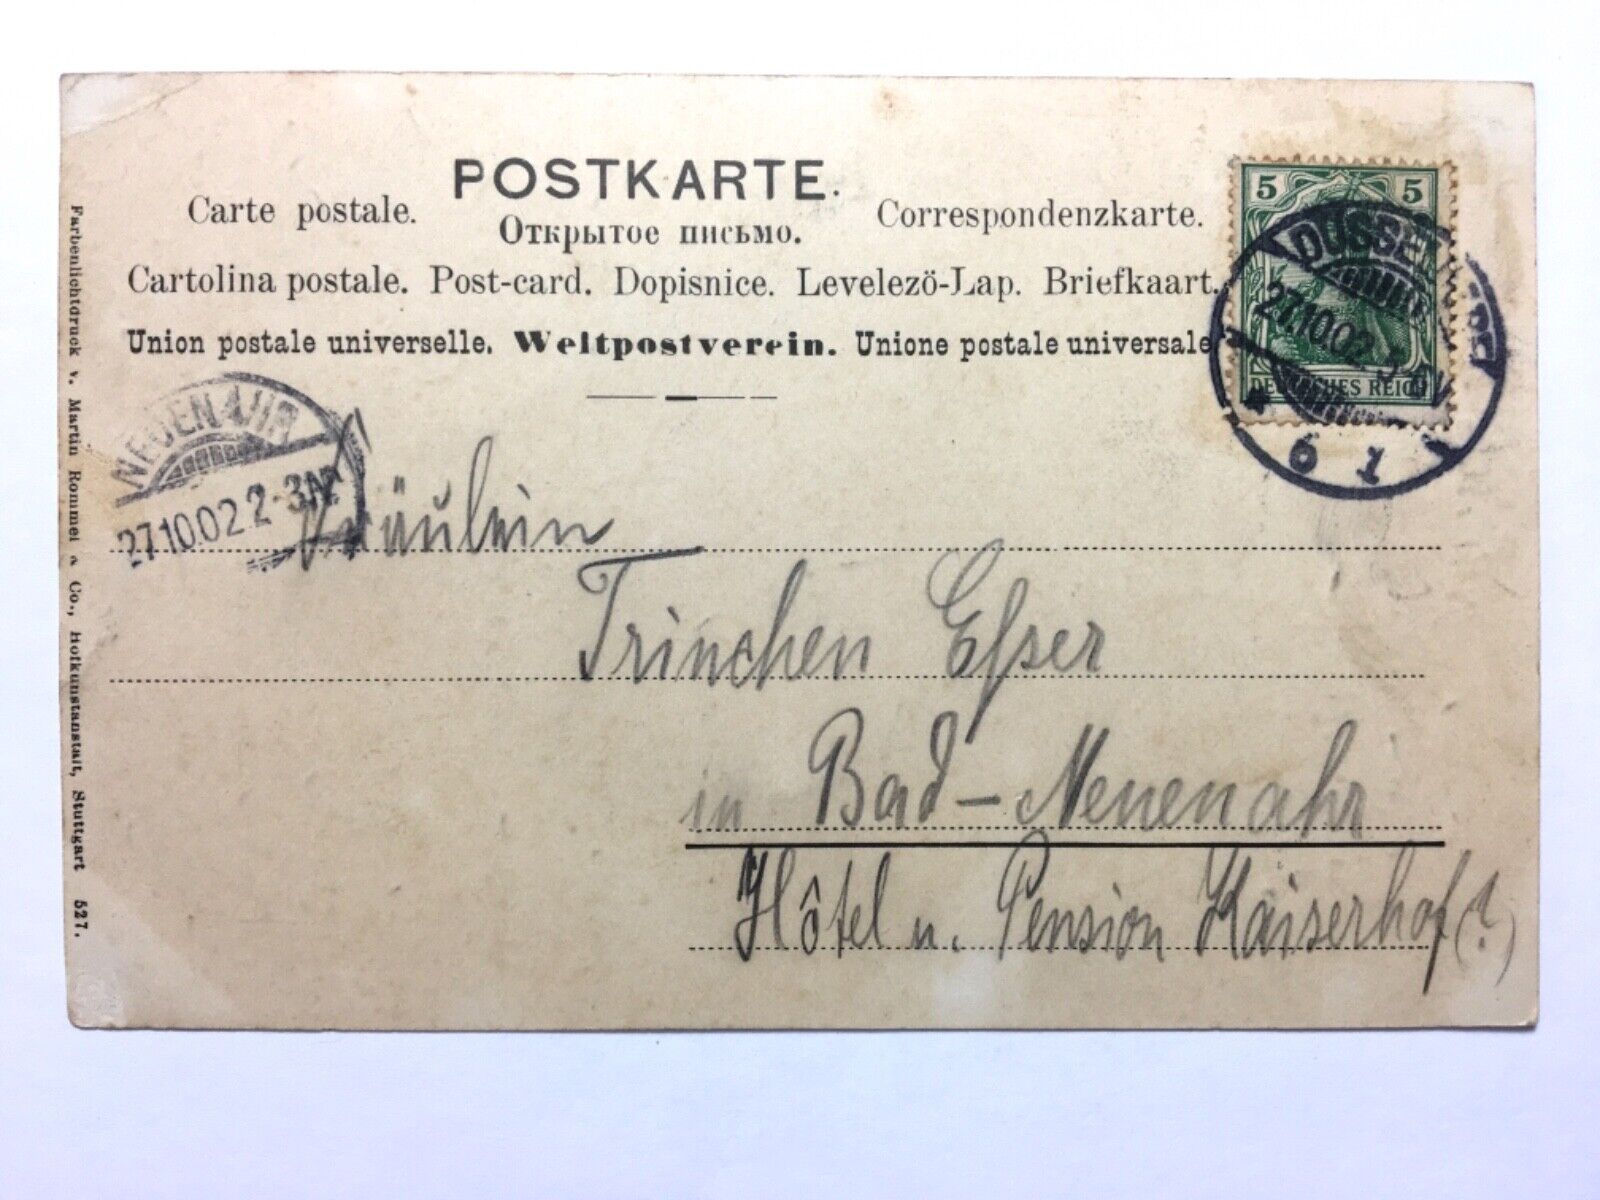 POSTKARTE.
Carte postale. Открытое письмо. Correspondenzkarte.
Cartolina postale. Post-card. Dopisnice. Levelezö-Lap. Briefkaart.
Union postale universelle. Weltpostverein. Unione postale universale
5 5
DEUTSCHES REICH
DÜSSELDORF
27.10.02.
* 6 1
NEUENAHR
27.10.02 2-3N
Fräulein
Trinchen Eſser
in Bad-Neuenahr
Hôtel u. Pension Kaiserhof (?)
Farbenlichtdruck v. Martin Rommel & Co., Hofkunstanstalt, Stuttgart 527.